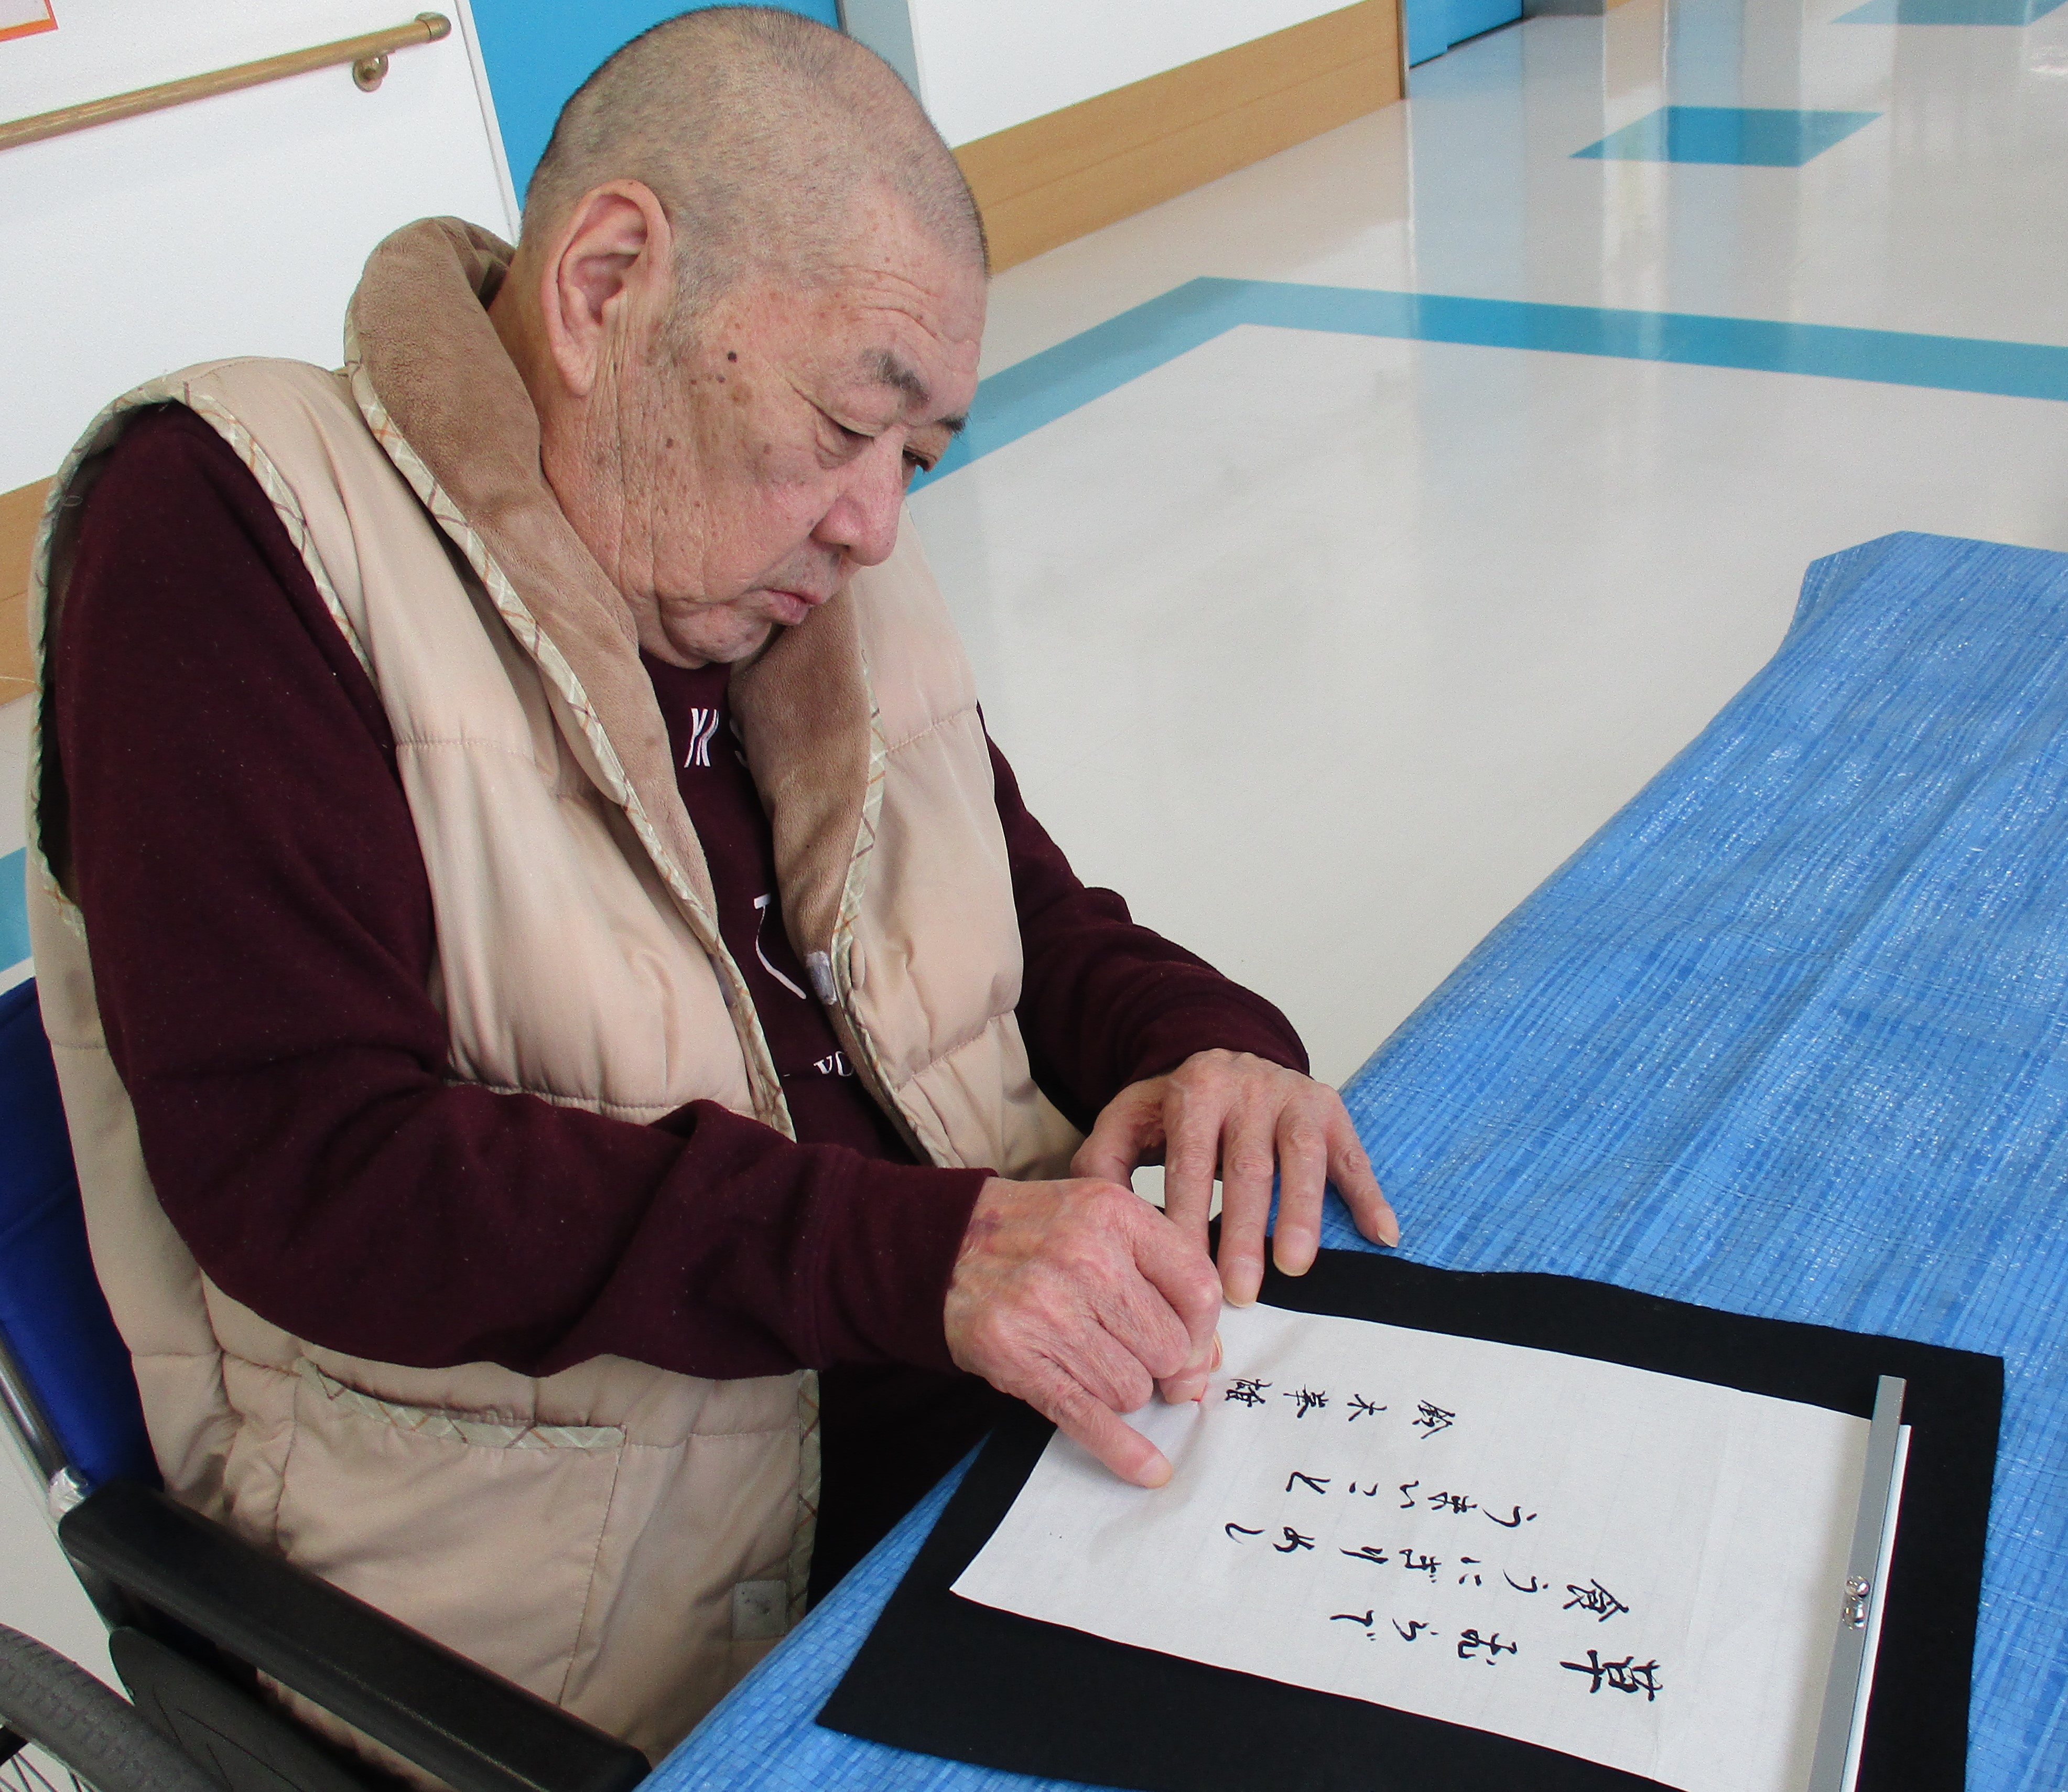 草むらで
食うにぎりめし
うまいこと
鈴木